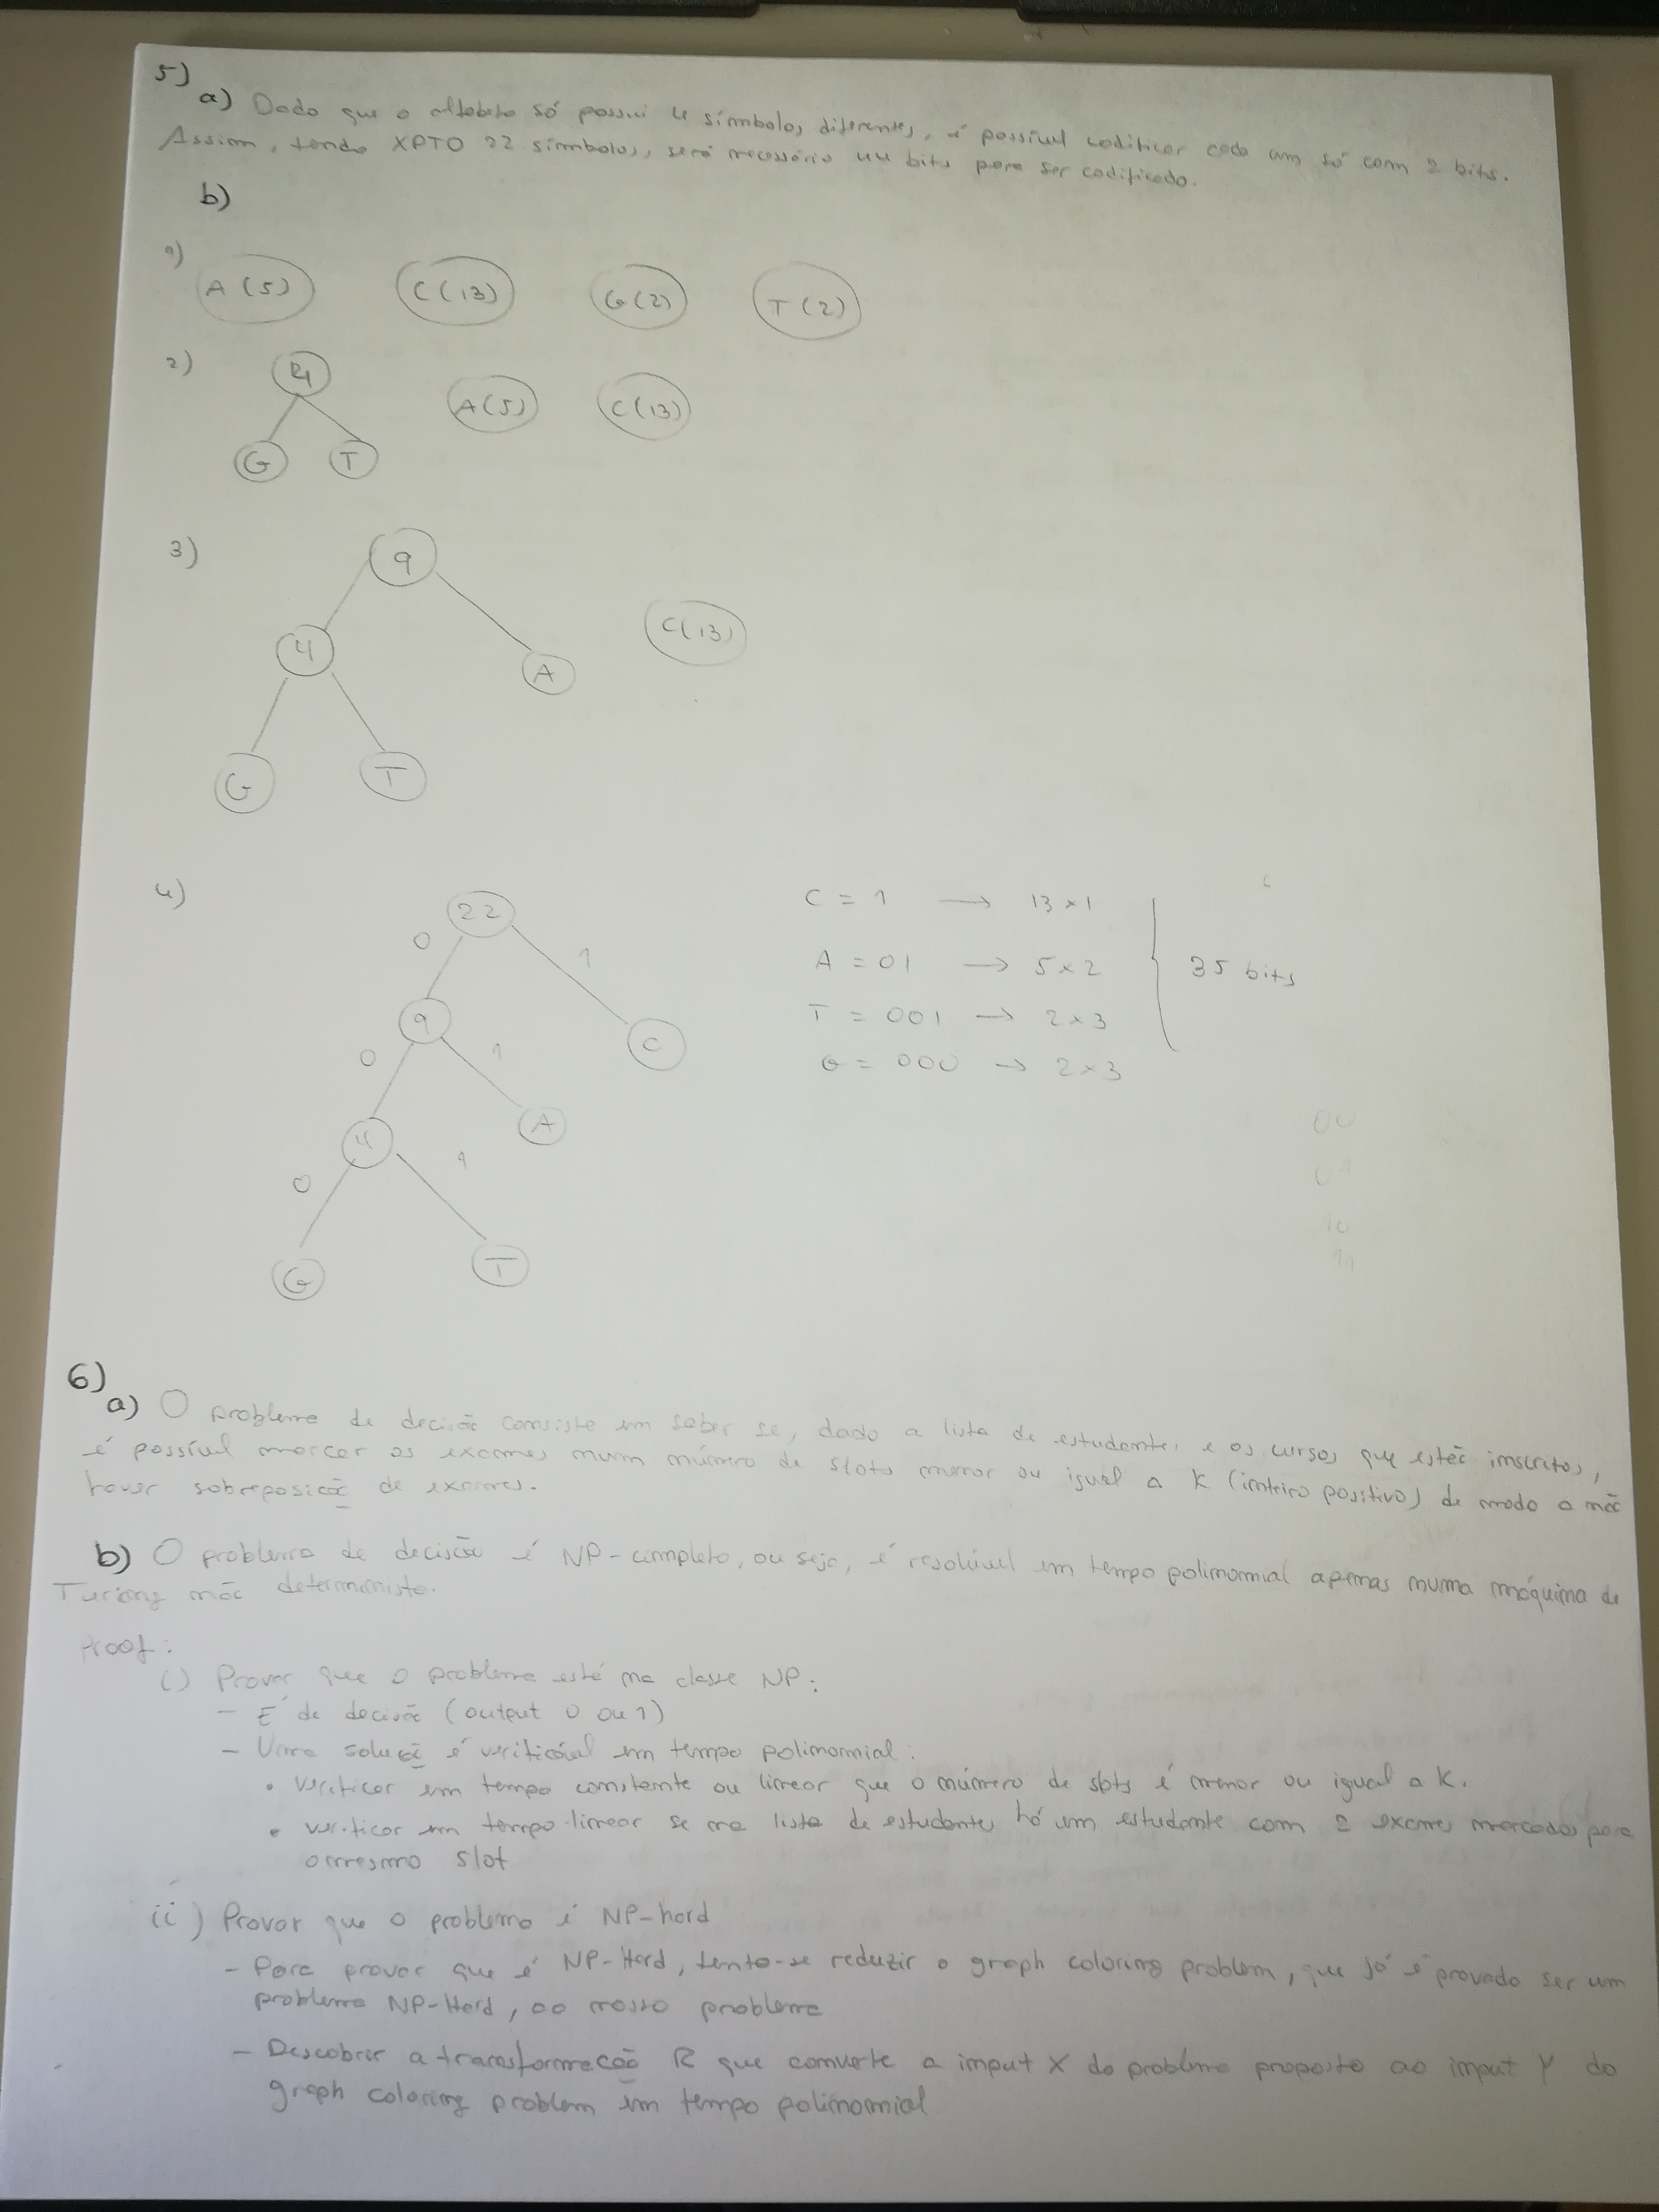 5)
a) Dado que o alfabeto só possui 4 símbolos diferentes, é possível codificar cada um só com 2 bits.
Assim, tendo XPTO 22 símbolos, será necessário 44 bits para ser codificado.
b)
1)
A (5) C (13) G (2) T (2)
2)
4
A (5) C (13)
G T
3)
9
C (13)
4 A
G T
4)
22
0 1
9 C
0 1
4 A
0 1
G T
C = 1 → 13 × 1
A = 01 → 5 × 2
35 bits
T = 001 → 2 × 3
G = 000 → 2 × 3
00
01
10
11
6)
a) O problema de decisão consiste em saber se, dado a lista de estudantes e os cursos que estão inscritos,
é possível marcar os exames num número de slots menor ou igual a K (inteiro positivo) de modo a não
haver sobreposição de exames.
b) O problema de decisão é NP-completo, ou seja, é resolúvel em tempo polinomial apenas numa máquina de
Turing não determinista.
Proof:
i) Provar que o problema está na classe NP:
- É de decisão (output 0 ou 1)
- Uma solução é verificável em tempo polinomial:
• verificar em tempo constante ou linear que o número de slots é menor ou igual a K.
• verificar em tempo linear se na lista de estudantes há um estudante com 2 exames marcados para
o mesmo slot
ii) Provar que o problema é NP-hard
- Para provar que é NP-Hard, tenta-se reduzir o graph coloring problem, que já é provado ser um
problema NP-Hard, ao nosso problema
- Descobrir a transformação R que converte a input X do problema proposto ao input Y do
graph coloring problem em tempo polinomial